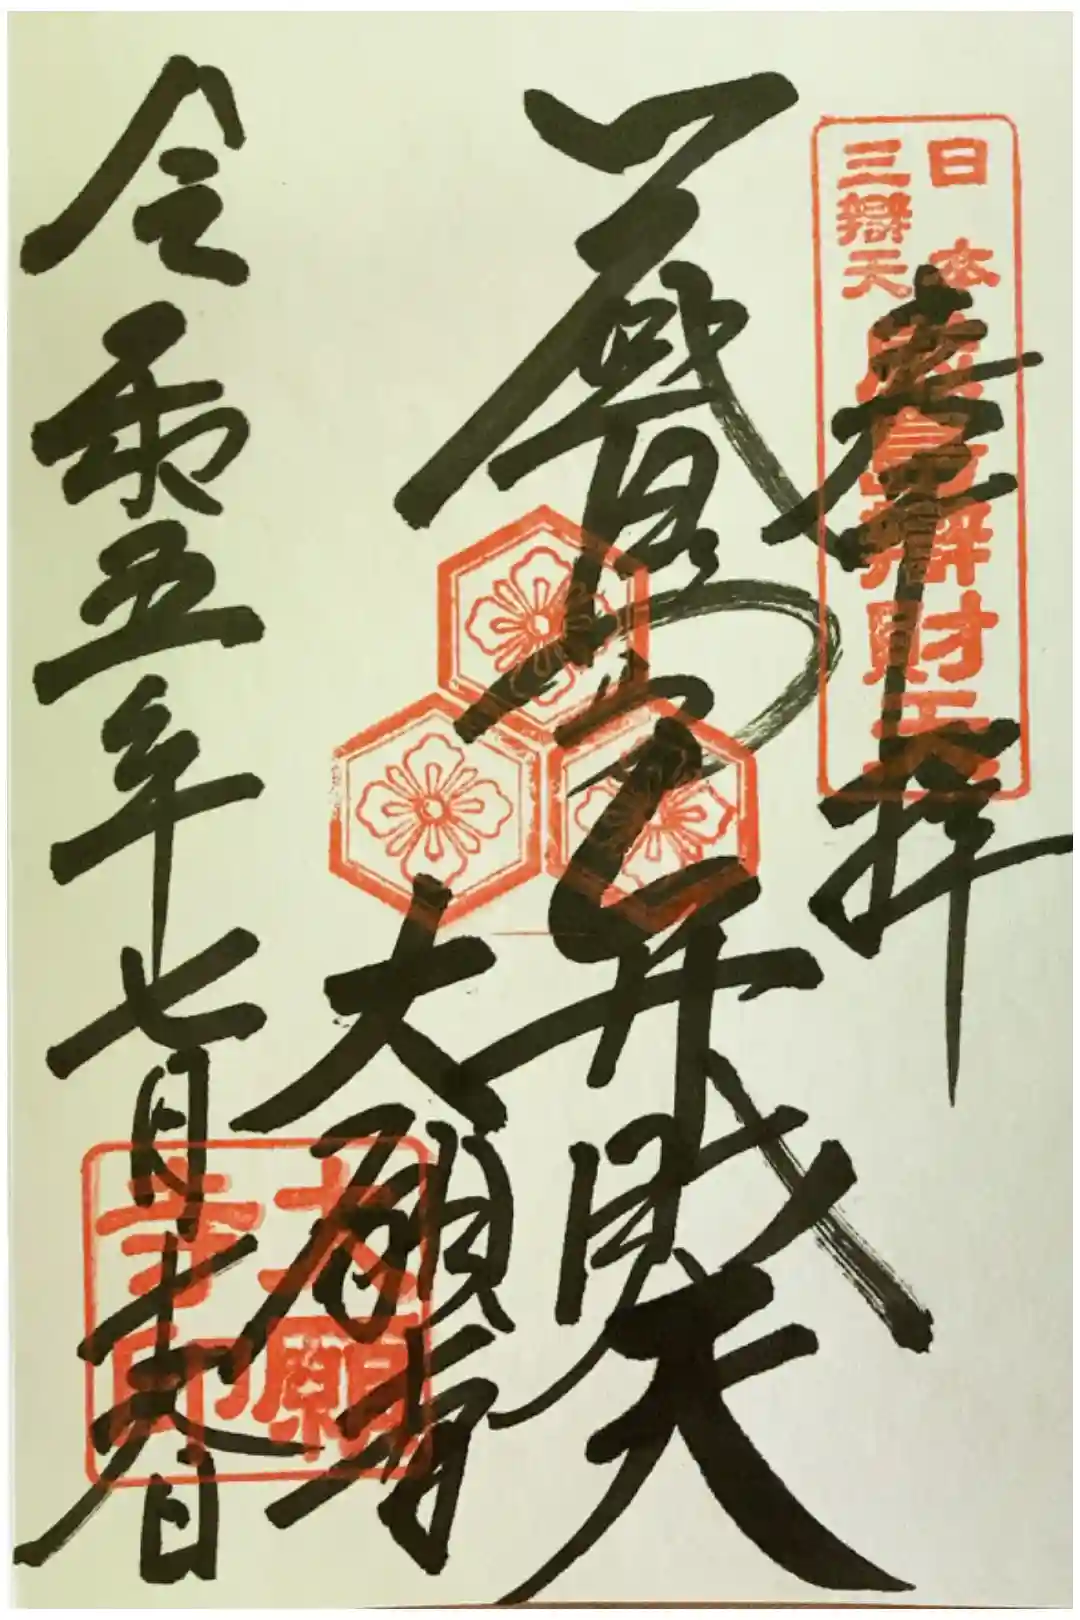 奉拝
日本
三辯天
厳島辯財天
厳島弁財天
大願寺
大願
寺印
令和五年七月